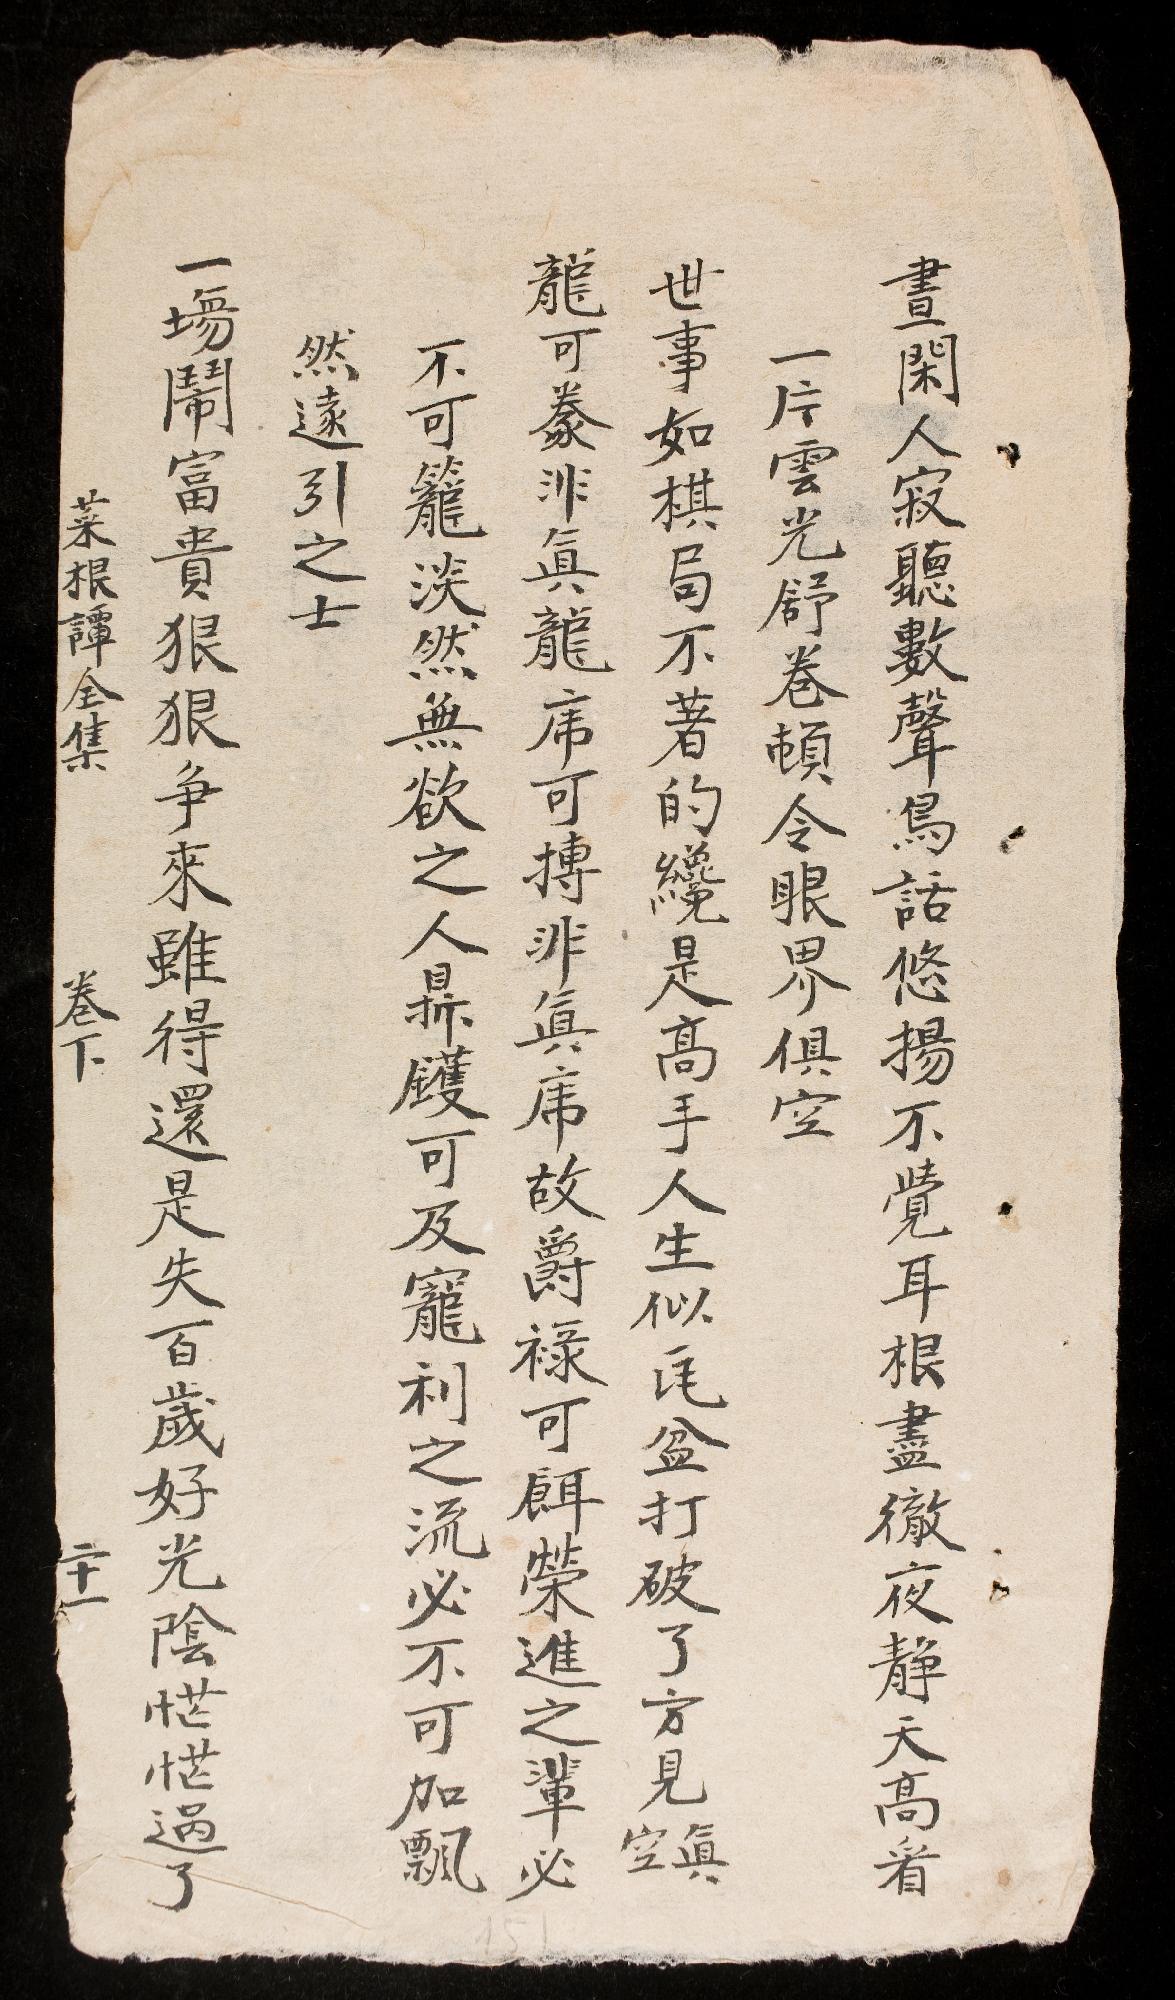 晝閑人寂聽數聲鳥話悠揚不覺耳根盡徹夜靜天高看
一片雲光舒卷頓令眼界俱空
世事如棋局不著的纔是高手人生似瓦盆打破了方見真空
龍可豢非真龍虎可搏非真虎故爵祿可餌榮進之輩必
不可籠淡然無欲之人鼎鑊可及寵利之流必不可加飄
然遠引之士
一塲鬧富貴狠狠争來雖得還是失百歲好光陰惹惹過了
菜根譚全集 卷下 二十一
151